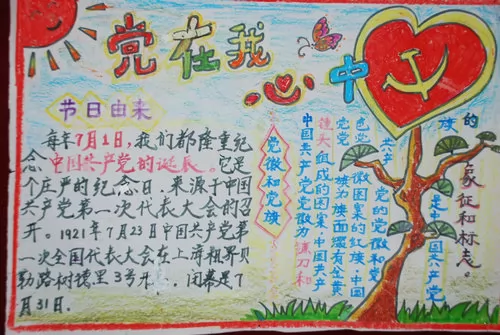 党在我心中
节日由来
每年7月1日，我们都隆重纪
念中国共产党的诞辰。它是
个庄严的纪念日，来源于中国
共产党第一次代表大会的召
开。1921年7月23日中国共产党第
一次全国代表大会在上海租界贝
勒路树德里3号开，闭幕是7
月31日.
党徽和党旗
中国共产党党徽为镰刀和
锤头组成的图案，中国共产
党党旗为旗面缀有金黄
色党徽图案的红旗，中国
共产党的党徽和党
旗是中国共产党
的象征和标志。